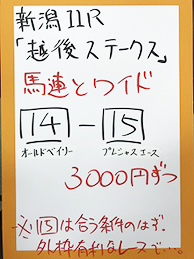 新潟11R
「越後ステークス」
馬連とワイド
14-15
オールドベイリー プレシャスエース
3000円ずつ
※15は合う条件のはず。
外枠有利なレースで…。